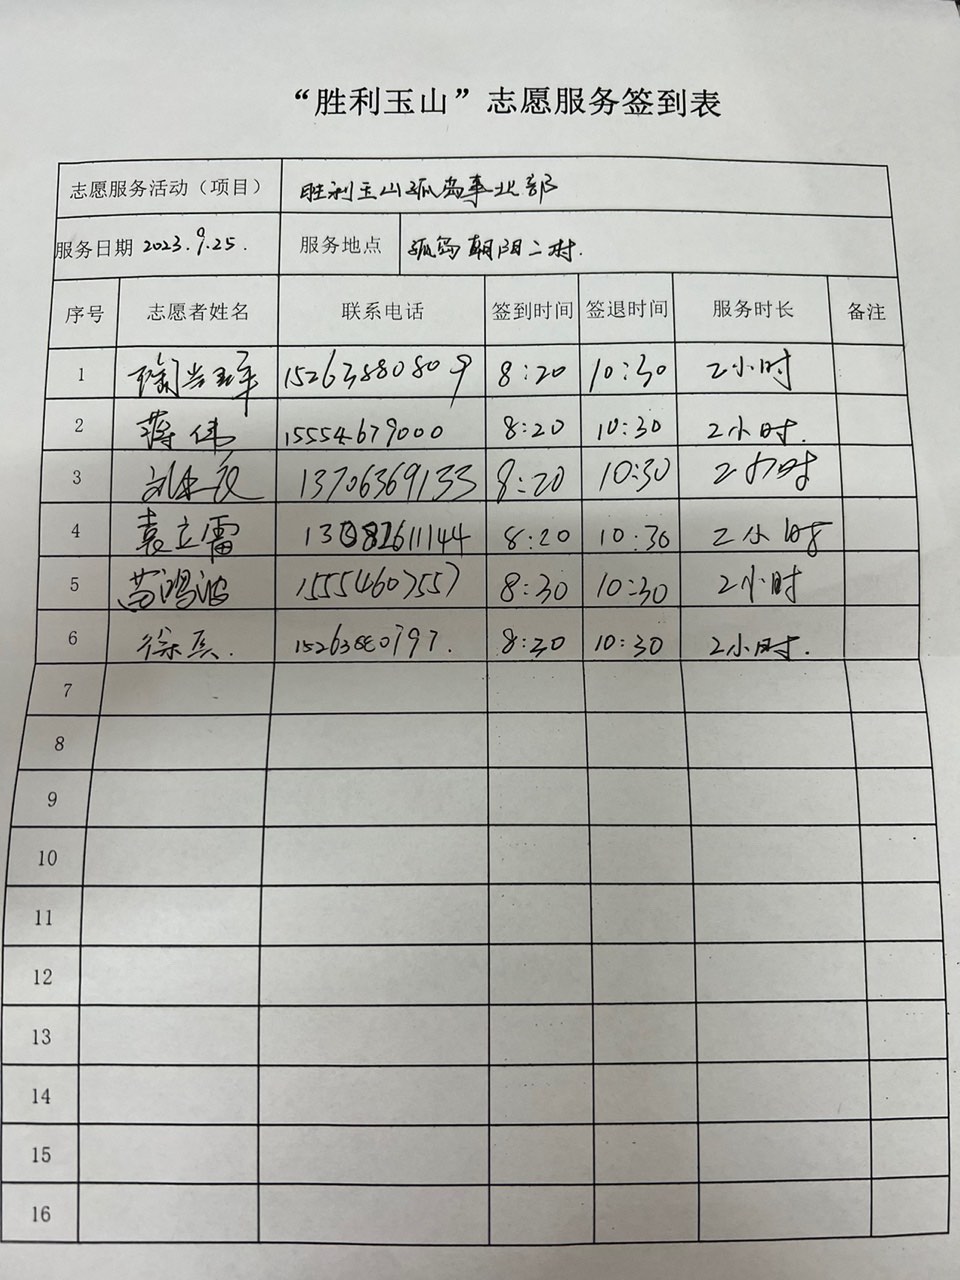 “胜利玉山”志愿服务签到表
志愿服务活动（项目） 胜利玉山孤岛事业部
服务日期 2023.9.25. 服务地点 孤岛朝阳二村.
序号 志愿者姓名 联系电话 签到时间 签退时间 服务时长 备注
1 15263880809 8:20 10:30 2小时
2 蒋伟 15554679000 8:20 10:30 2小时.
3 13706369133 8:20 10:30 2小时
4 袁立雷 13082611144 8:20 10:30 2小时
5 苗鸿波 15554607557 8:30 10:30 2小时
6 徐兵. 15263880797. 8:30 10:30 2小时.
7
8
9
10
11
12
13
14
15
16